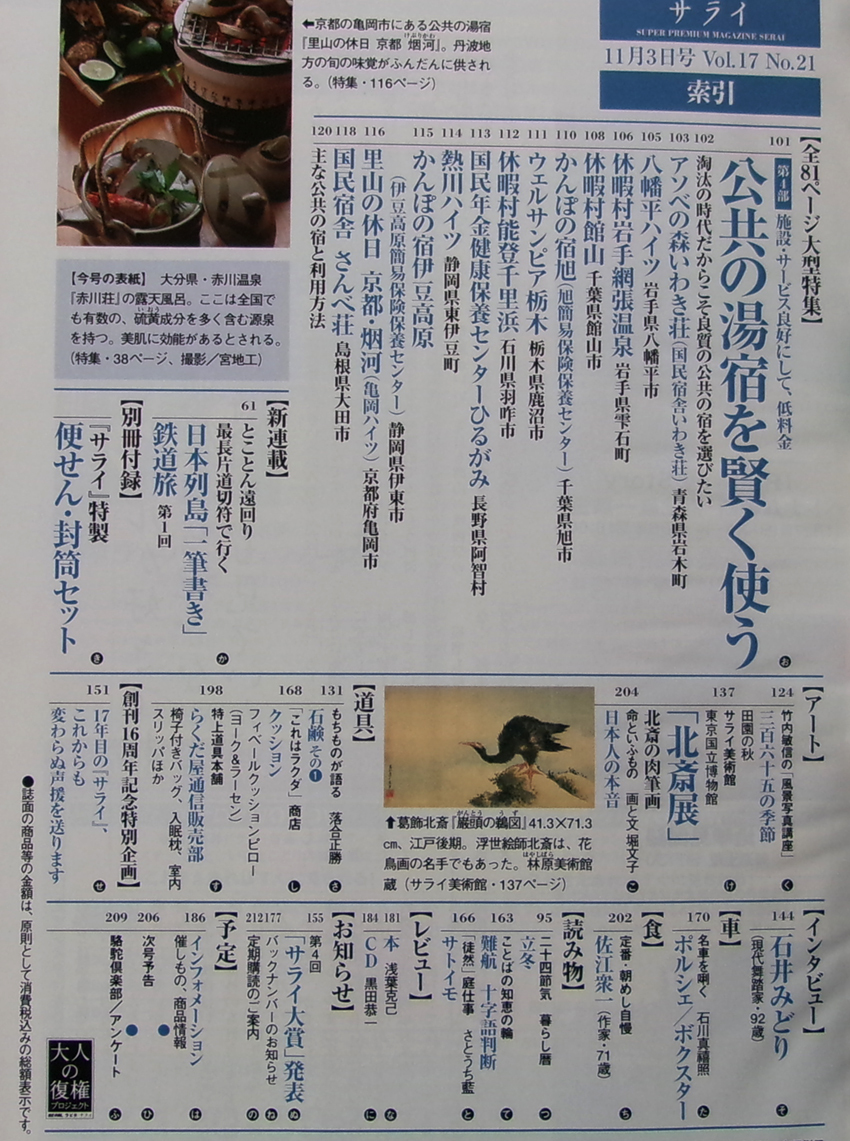 サライ
SUPER PREMIUM MAGAZINE SERAI
11月3日号 Vol.17 No.21
索引
⬅京都の亀岡市にある公共の湯宿
『里山の休日 京都 烟河』。丹波地
けぶりかわ
方の旬の味覚がふんだんに供され
る。(特集・116ページ)
【今号の表紙】 大分県・赤川温泉
『赤川荘』の露天風呂。ここは全国で
も有数の、硫黄成分を多く含む源泉
いおう
を持つ。美肌に効能があるとされる。
(特集・38ページ、撮影/宮地工)
【全81ページ大型特集】
101
第4部 施設・サービス良好にして、低料金
公共の湯宿を賢く使う お
102 淘汰の時代だからこそ良質の公共の宿を選びたい
103 アソベの森いわき荘(国民宿舎いわき荘) 青森県岩木町
105 八幡平ハイツ 岩手県八幡平市
106 休暇村岩手網張温泉 岩手県雫石町
108 休暇村館山 千葉県館山市
110 かんぽの宿旭(旭簡易保険保養センター) 千葉県旭市
111 ウェルサンピア栃木 栃木県鹿沼市
112 休暇村能登千里浜 石川県羽咋市
113 国民年金健康保養センターひるがみ 長野県阿智村
114 熱川ハイツ 静岡県東伊豆町
115 かんぽの宿伊豆高原
(伊豆高原簡易保険保養センター) 静岡県伊東市
116 里山の休日 京都・烟河(亀岡ハイツ) 京都府亀岡市
118 国民宿舎 さんべ荘 島根県大田市
120 主な公共の宿と利用方法
【新連載】
61 とことん遠回り
最長片道切符で行く か
日本列島「一筆書き」
鉄道旅 第1回
【別冊付録】
『サライ』特製
便せん・封筒セット き
【アート】
124 竹内敏信の「風景写真講座」 く
三百六十五の季節
田園の秋
137 サライ美術館 け
東京国立博物館
「北斎展」
北斎の肉筆画
204 命といふもの 画と文 堀文子 こ
日本人の本音
⬆葛飾北斎『巖頭の鵜図』41.3×71.3
がんとう うず
cm、江戸後期。浮世絵師北斎は、花
鳥画の名手でもあった。林原美術館
はやしばら
蔵(サライ美術館・137ページ)
【道具】
131 もちものが語る 落合正勝 さ
石鹸 その❶
168 「これはラクダ」商店 し
クッション
フィベールクッションピロー
(ヨーク&ラーセン)
198 特上道具本舗 す
らくだ屋通信販売部
椅子付きバッグ、入眠枕、室内
スリッパほか
【創刊16周年記念特別企画】
151 17年目の『サライ』、 せ
これからも
変わらぬ声援を送ります
【インタビュー】
144 石井みどり そ
(現代舞踏家・92歳)
【車】
170 名車を聞く 石川真禧照 た
ポルシェ/ボクスター
【食】
202 定番・朝めし自慢 ち
佐江衆一(作家・71歳)
【読み物】
95 二十四節気 暮らし暦 つ
立冬
163 ことばの知恵の輪 て
難航 十字語判断
166 「徒然」庭仕事 さとうち藍 と
サトイモ
【レビュー】
181 本 浅葉克己 な
184 CD 黒田恭一 に
【お知らせ】
155 第4回
「サライ大賞」発表 ぬ
177 バックナンバーのお知らせ ね
212 定期購読のご案内 の
【予定】
186 インフォメーション は
催しもの、商品情報
206 次号予告 ひ
209 駱駝倶楽部/アンケート ふ
大人の復権
プロジェクト
●誌面の商品等の金額は、原則として消費税込みの総額表示です。